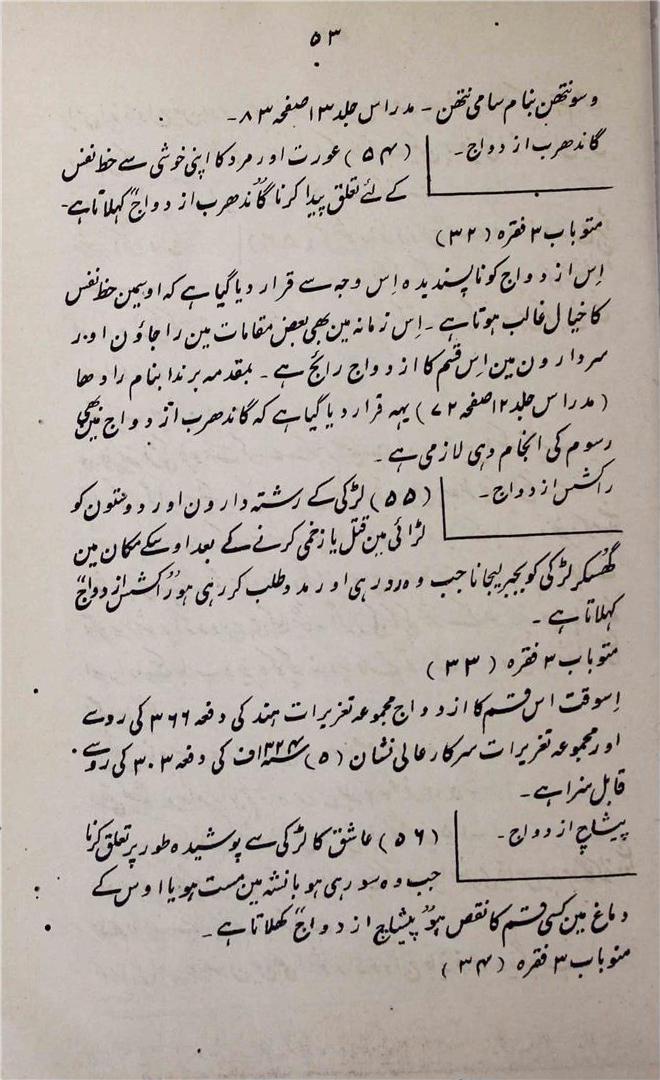 ۵۳
وسونتھن بنام سامی نتھن - مدراس جلد ۱۳ صفحہ ۸۳ -
گاندھرب ازدواج - (۵۴) عورت اور مرد کا اپنی خوشی سے حظ نفس
کے لئے تعلق پیدا کرنا "گاندھرب ازدواج" کہلاتا ہے -
منو باب ۳ فقرہ (۳۲)
اِس ازدواج کو ناپسندیدہ اِس وجہ سے قرار دیا گیا ہے کہ اوسمین حظ نفس
کا خیال غالب ہوتا ہے - اِس زمانہ مین بھی بعض مقامات مین راجاؤن اور
سردارون مین اِس قسم کا ازدواج رائج ہے - بمقدمہ برندا بنام رادھا
(مدراس جلد ۱۲ صفحہ ۷۲) یہہ قرار دیا گیا ہے کہ گاندھرب ازدواج مین بھی
رسوم کی انجام دہی لازمی ہے -
راکشس ازدواج - (۵۵) لڑکی کے رشتہ دارون اور دوستون کو
لڑائی مین قتل یا زخمی کرنے کے بعد اوسکے مکان مین
گھسکر لڑکی کو بجبر لیجانا جب وہ رو رہی اور مدد طلب کر رہی ہو "راکشس ازدواج"
کہلاتا ہے -
منو باب ۳ فقرہ (۳۳)
اِسوقت اس قسم کا ازدواج مجموعہ تعزیرات ہند کی دفعہ ۳۶۶ کی روسے
اور مجموعہ تعزیرات سرکار عالی نشان (۵) سنہ ۱۳۲۴ ف کی دفعہ ۳۰۳ کی روسے
قابل سزا ہے -
پیشاچ ازدواج - (۵۶) عاشق کا لڑکی سے پوشیدہ طور پر تعلق کرنا
جب وہ سو رہی ہو یا نشہ مین مست ہو یا اوس کے
دماغ مین کسی قسم کا نقص ہو "پیشاچ ازدواج" کہلاتا ہے -
منو باب ۳ فقرہ (۳۴)